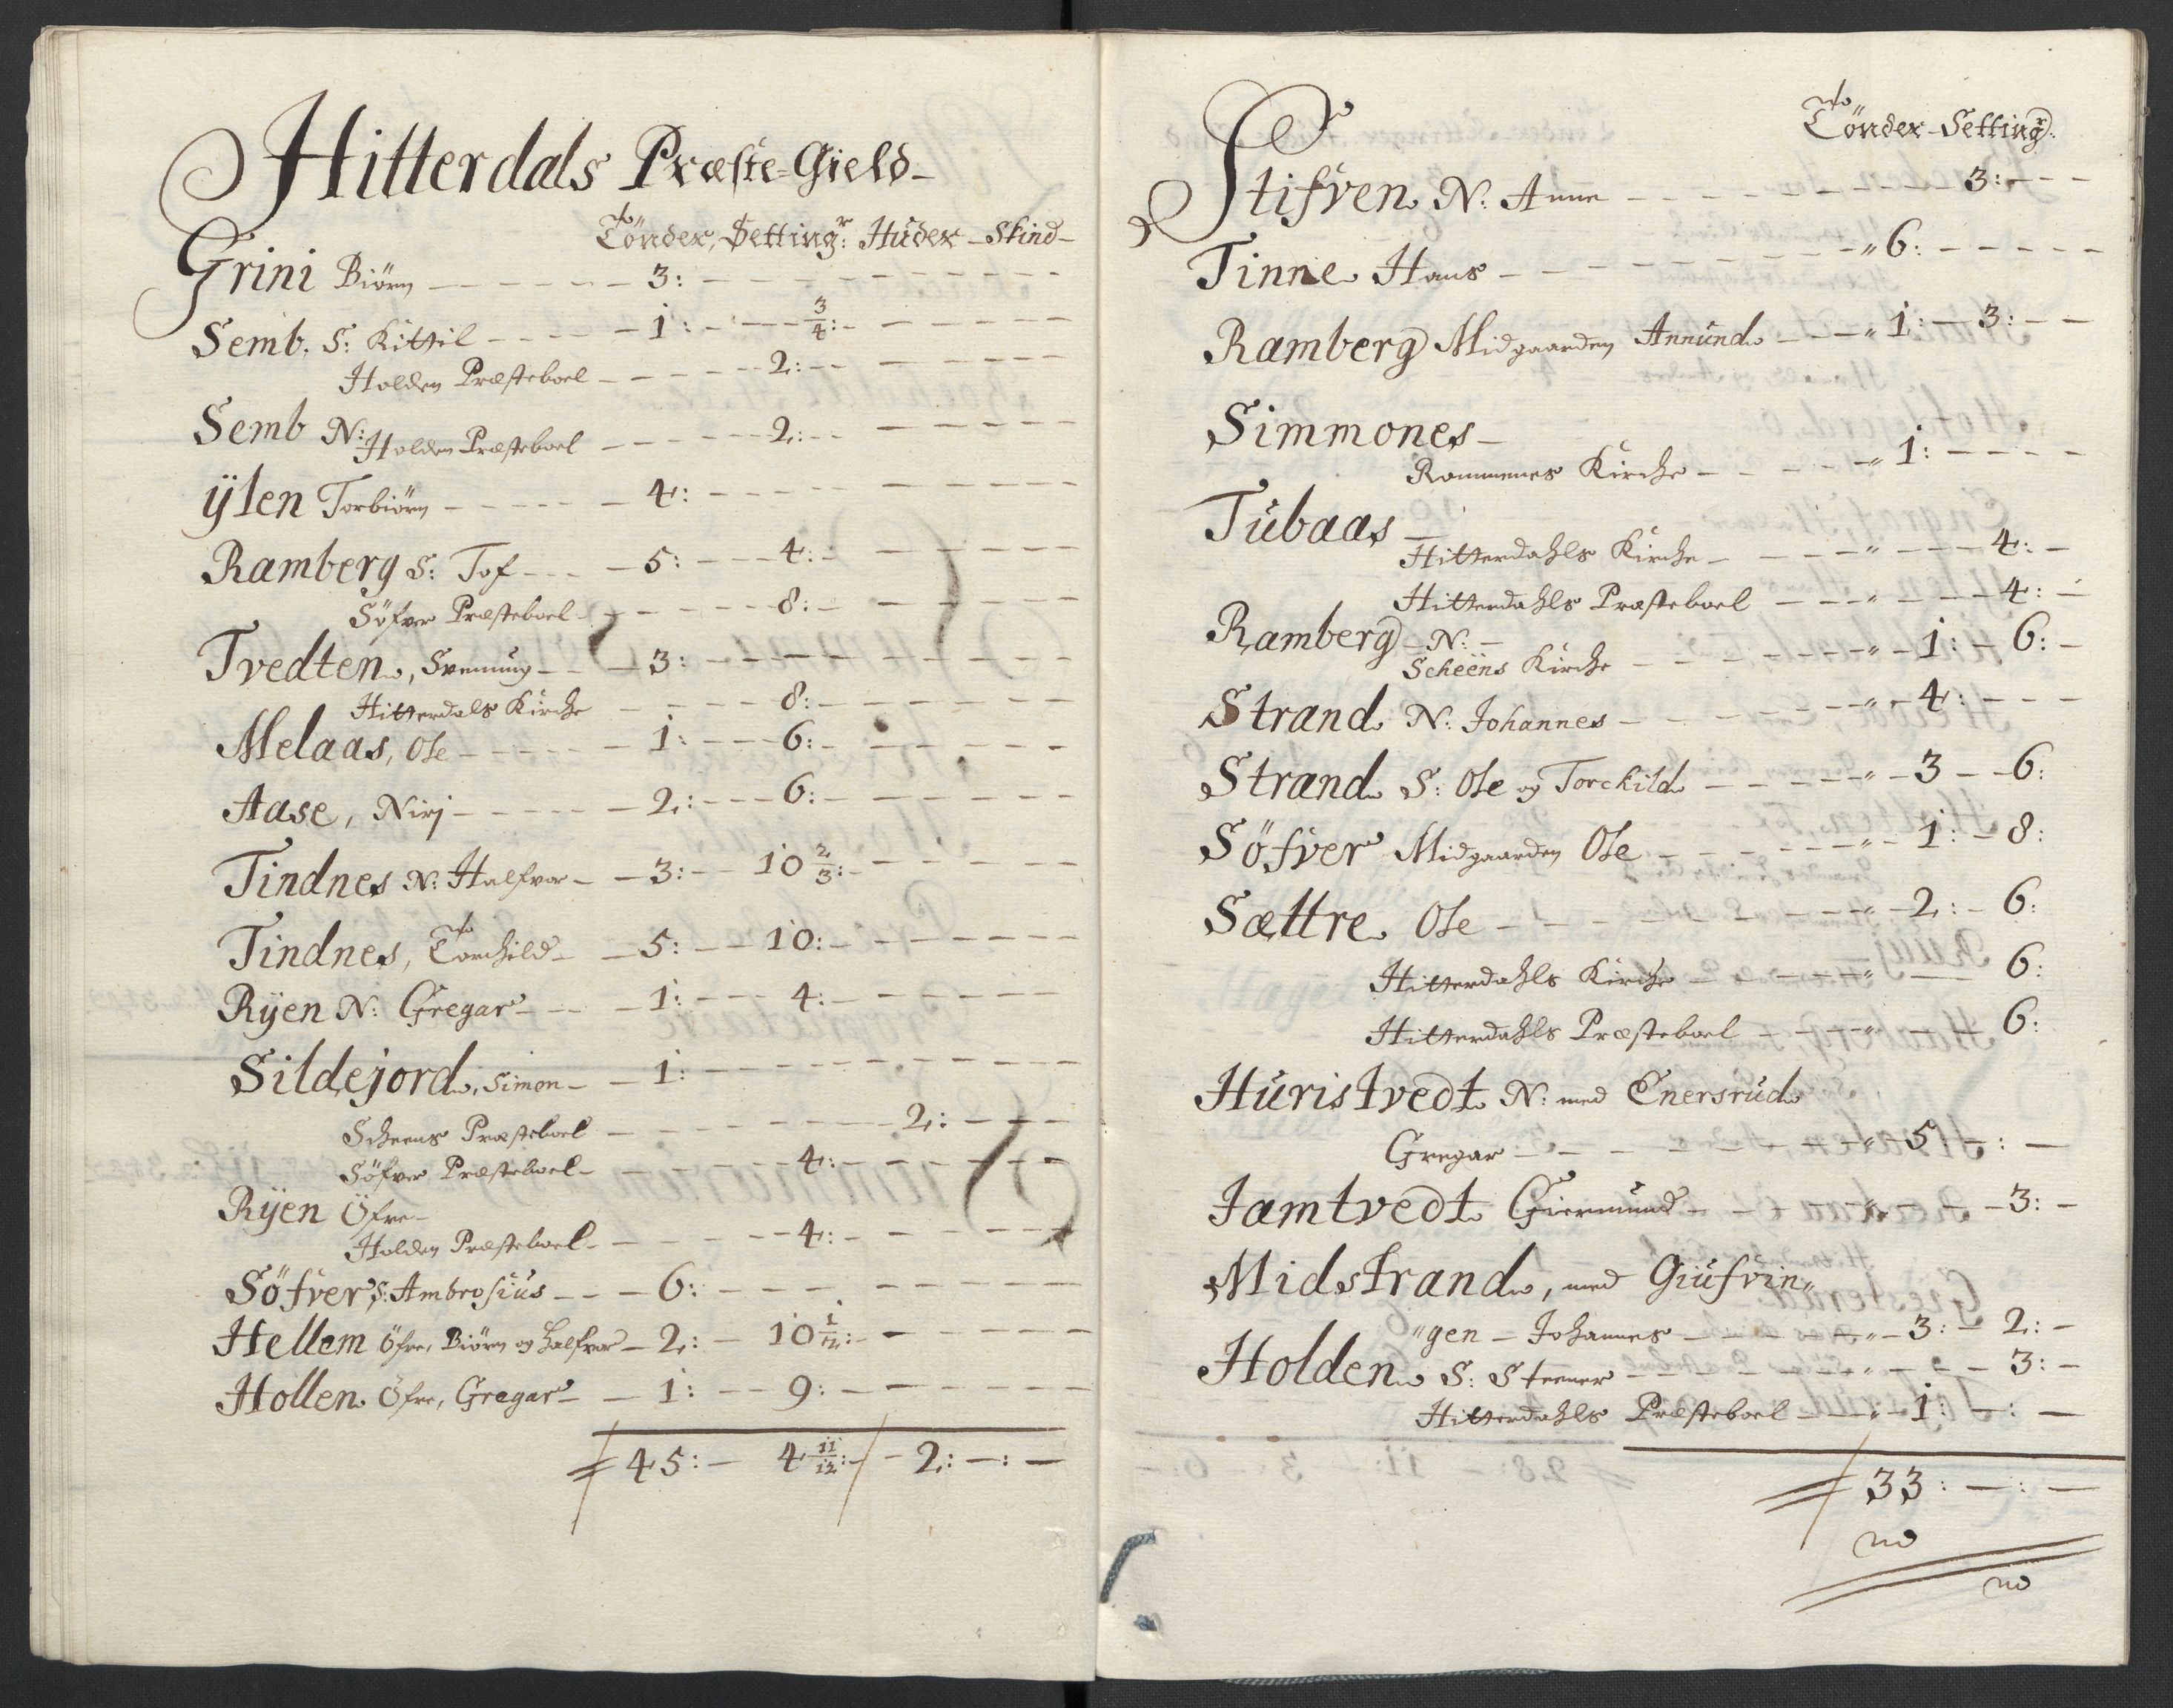 Hitterdals Præste-Gield-
Tönder, Setting^r: Huder - Skind-
Grini Biörn - - - - - - 3: - - - -
Semb. S: Kittil - - - - 1: - - - 3/4: -
Holden Præsteboel - - - - - 2: - -
Semb N:
Holden Præsteboel - - - - - 2: - -
ÿlen Torbiörn - - - - - 4: - - - -
Ramberg S: Tof - - - 5: - - - 4: -
Söfver Præsteboel - - - - - 8: -
Tvedten, Svenning - - - 3: - - - -
Hitterdals Kirche - - - - 8: - - -
Melaas, Ole - - - - - 1: - - - 6: -
Aase, Nirj - - - - - 2: - - - 6: -
Tindnes N: Halfvor - - 3: - - 10 2/3: -
Tindnes, Torchild - - 5: - - 10: -
Rÿen N: Gregar - - - 1: - - - 4: -
Sildejord, Simon - - 1: - - - - -
Scheens Præsteboel - - - - - - - 2: - - -
Söfver Præsteboel - - - - - 4: - - -
Rÿen Öfre -
Holden Præsteboel - - - - - 4: - - -
Söfver S: Ambrosius - - - 6: - - - -
Hellem öfre, Biörn og Halfvor - 2: - 10 1/12: - -
Hollen Öfre, Gregar - - 1: - - 9: - -
45: - 4 11/12: - - 2: - : -
Tönder - Setting^r:
Stifven N: Anne - - - - - - - 3: - - -
Tinne Hans - - - - - - - - " 6: - - - -
Ramberg Midgaarden Annund - - - " 1: - 3: - -
Simmones -
Rommenes Kirche - - - - - " 1: - - - -
Tubaas -
Hitterdahls Kirche - - - - - " - - - 4: -
Hitterdahls Præsteboel - - - " - - - 4: -
Ramberg N: -
Scheens Kirche - - - - - - " - 1: - 6: -
Strand N: Johannes - - - - - - " - 4: - - -
Strand S: Ole og Torckild - - - - - " - 3 - - 6:
Söfver Midgaarden Ole - - - - - - " - 1: - 8:
Sættre Ole - - - - - - - - " - 2: - 6:
Hitterdahls Kirche - - - - - " - - 6:
Hitterdahls Præsteboel - - - - " - - 6:
Huristvedt N: med Enersrud
Gregar - - - - - - - " - 5 - : -
Jamtvedt Giermund - - - - " - - - 3: -
Midstrand, med Giufvin"
"gen - Johannes - - - - - " - 3: - 2: -
Holden S: Steener - - - - - - " - - - 3: -
Hitterdahls Præsteboel - - - " - 1: - : -
33: - : -